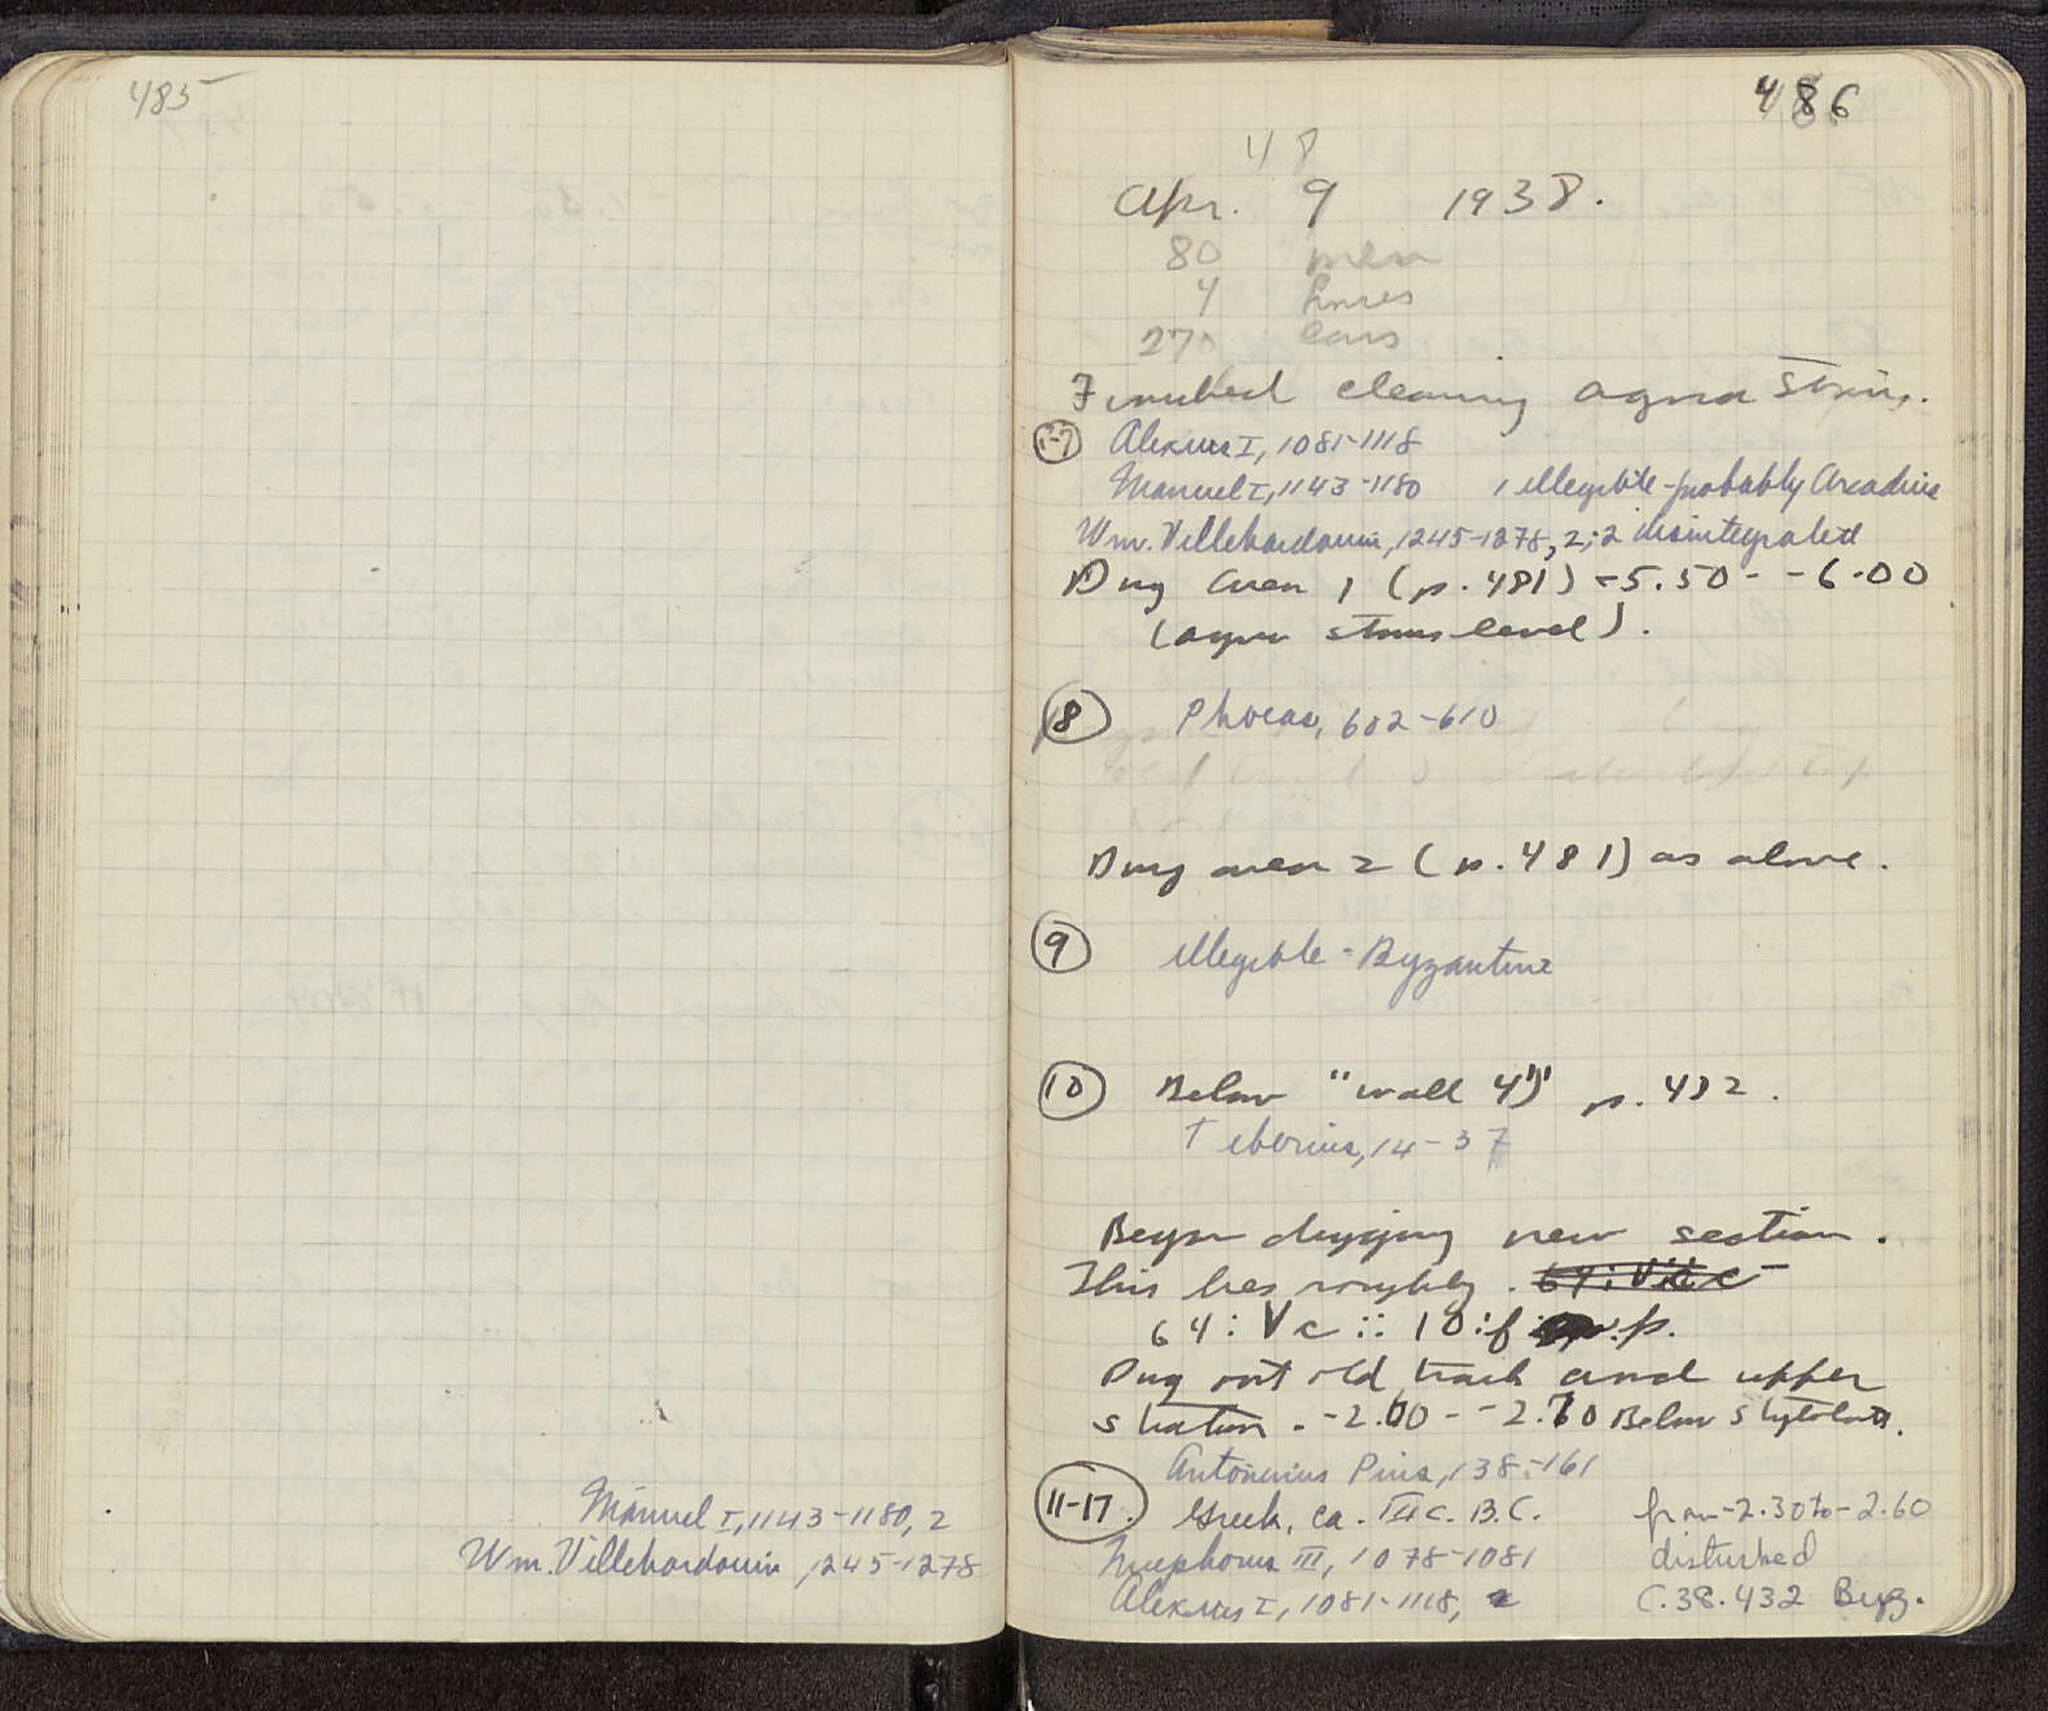 485
Manuel I, 1143-1180, 2
Wm. Villehardouin, 1245-1278
486
Apr. 9 1938.
80 men
4 horses
27 cars
Finished cleaning agora
1-7 Alexius I, 1081-1118
Manuel I, 1143-1180 1 illegible - probably Arcadius
Wm. Villehardouin, 1245-1278, 2; 2 disintegrated
Dug area 1 (p. 481) -5.50 - -6.00
(agora level).
8 Phocas, 602-610
Dug area 2 (p. 481) as above.
9 illegible - Byzantine
10 Below "wall 4" p. 482.
Tiberius, 14-37
Began digging new section.
This lies roughly
64: Vc :: 18:f p.
Dug out old track and upper
stratum. -2.00 - -2.70 Below Stylobate.
Antoninus Pius, 138-161
11-17. Greek, ca. III c. B.C. from -2.30 to -2.60
Nicephorus III, 1078-1081 disturbed
Alexius I, 1081-1118, 2 C.38.432 Byz.